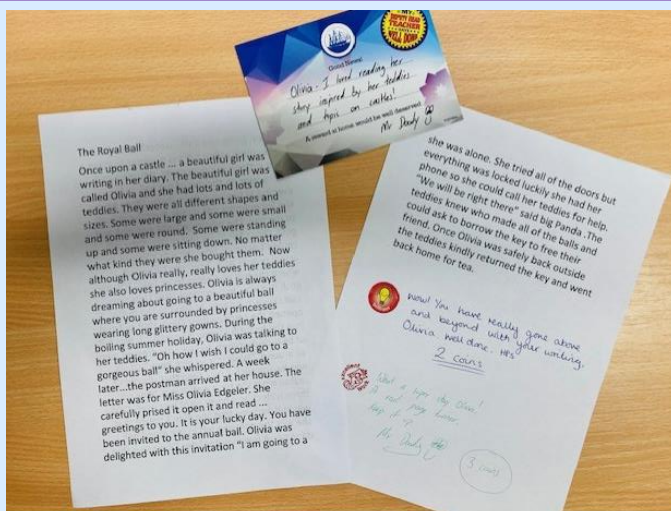 MY
DEPUTY HEAD
TEACHER
SAYS
WELL DONE
Good News!
Olivia - I loved reading her
story inspired by her teddies
and topic on castles!
A reward at home would be well deserved
Mr Dendy
The Royal Ball
Once upon a castle ... a beautiful girl was
writing in her diary. The beautiful girl was
called Olivia and she had lots and lots of
teddies. They were all different shapes and
sizes. Some were large and some were small
and some were round. Some were standing
up and some were sitting down. No matter
what kind they were she bought them. Now
although Olivia really, really loves her teddies
she also loves princesses. Olivia is always
dreaming about going to a beautiful ball
where you are surrounded by princesses
wearing long glittery gowns. During the
boiling summer holiday, Olivia was talking to
her teddies. "Oh how I wish I could go to a
gorgeous ball" she whispered. A week
later...the postman arrived at her house. The
letter was for Miss Olivia Edgeler. She
carefully prised it open it and read ...
greetings to you. It is your lucky day. You have
been invited to the annual ball. Olivia was
delighted with this invitation "I am going to a
she was alone. She tried all of the doors but
everything was locked luckily she had her
phone so she could call her teddies for help.
"We will be right there" said big Panda. The
teddies knew who made all of the balls and
could ask to borrow the key to free their
friend. Once Olivia was safely back outside
the teddies kindly returned the key and went
back home for tea.
Wow! You have really gone above
and beyond with your writing,
Olivia well done.
2 coins
What a super story Olivia!
A real
Keep it up
Mr Dendy
3 coins